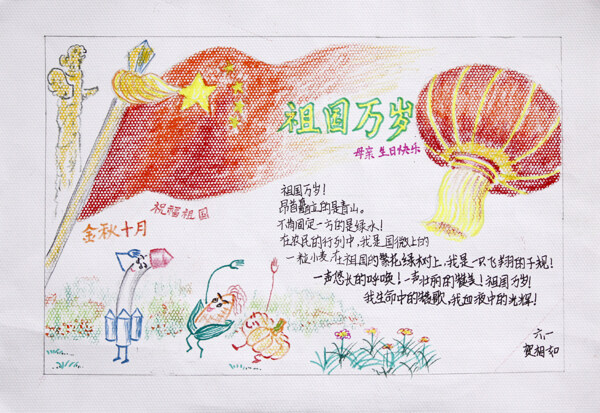 祖国万岁
母亲 生日快乐
祝福祖国
金秋十月
祖国万岁！
昂首矗立的是青山。
不断固定一方的是绿水！
在农民的行列中，我是国徽上的
一粒小麦，在祖国的繁花绿树上，我是一只飞翔的子规！
一声悠长的呼唤！一声壮丽的赞美！祖国万岁
我生命中的赞歌，我血液中的光辉！
六、一
贺相如